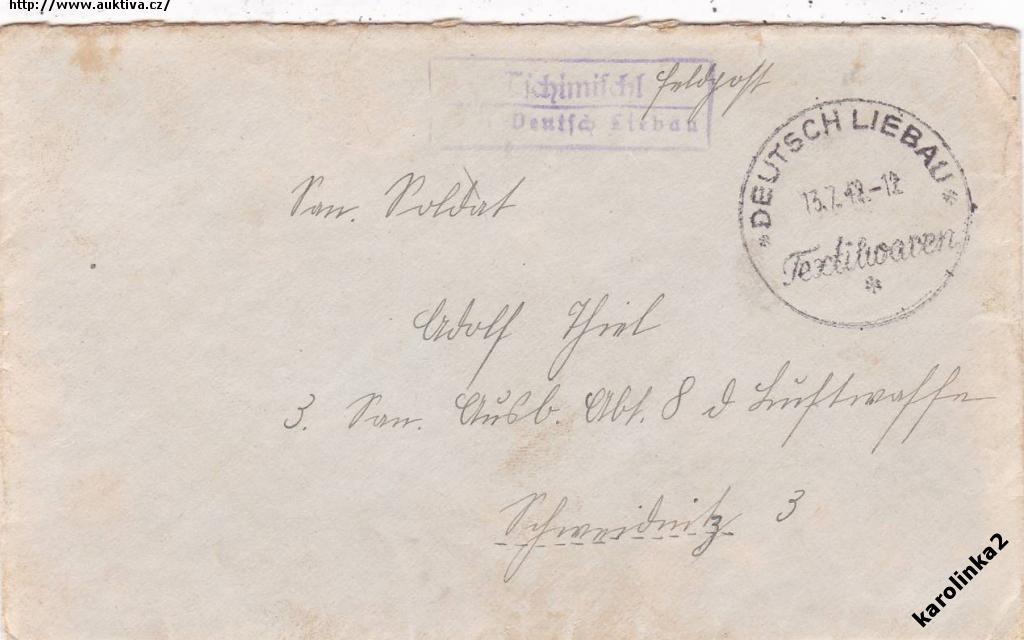 http://www.auktiva.cz/
Tschimischl Feldpost
Deutsch Liebau
* DEUTSCH LIEBAU *
13.7.42.-12
Textilwaren
*
San. Soldat
Adolf Thiel
3. San. Ausb. Abt. 8 d Luftwaffe
Schweidnitz 3
karolinka2